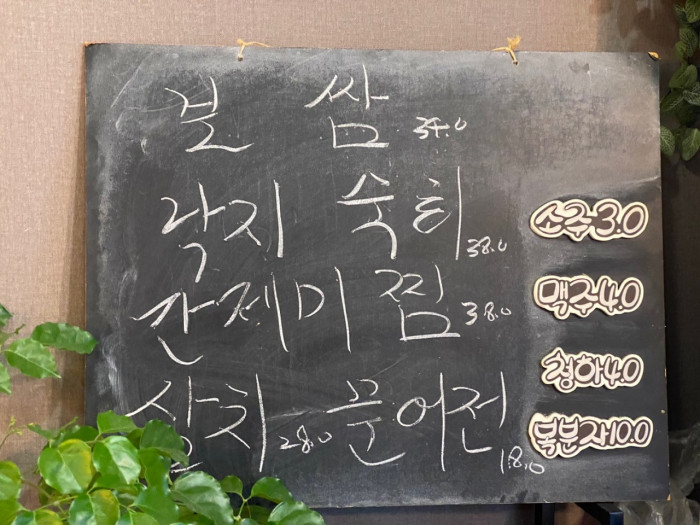 보쌈 34.0
낙지 숙회 38.0
간제미 찜 38.0
삼치 28.0 문어전 18.0
소주 3.0
맥주 4.0
청하 4.0
복분자 10.0